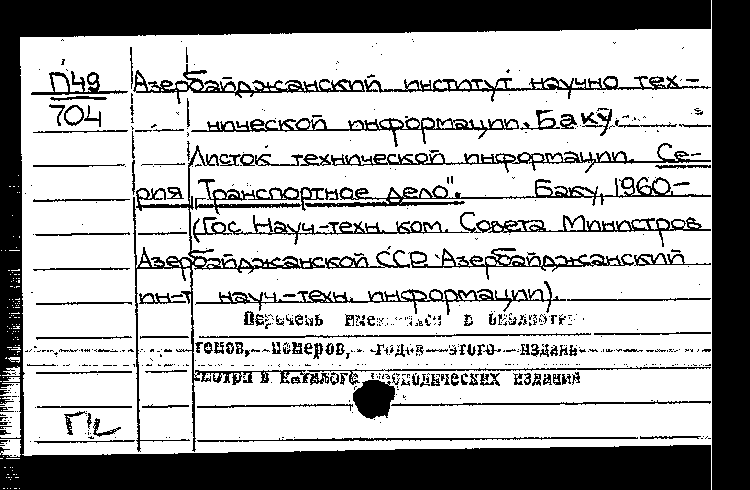 П49
704
Азербайджанский институт научно тех-
нической информации. Баку.-
Листок технической информации. Се-
рия „Транспортное дело". Баку, 1960.-
(Гос. Науч.-техн. ком. Совета Министров
Азербайджанской ССР. Азербайджанский
ин-т науч.-техн. информации).
Перечень в
томов, номеров, годов этого издания
смотри в каталоге периодических изданий